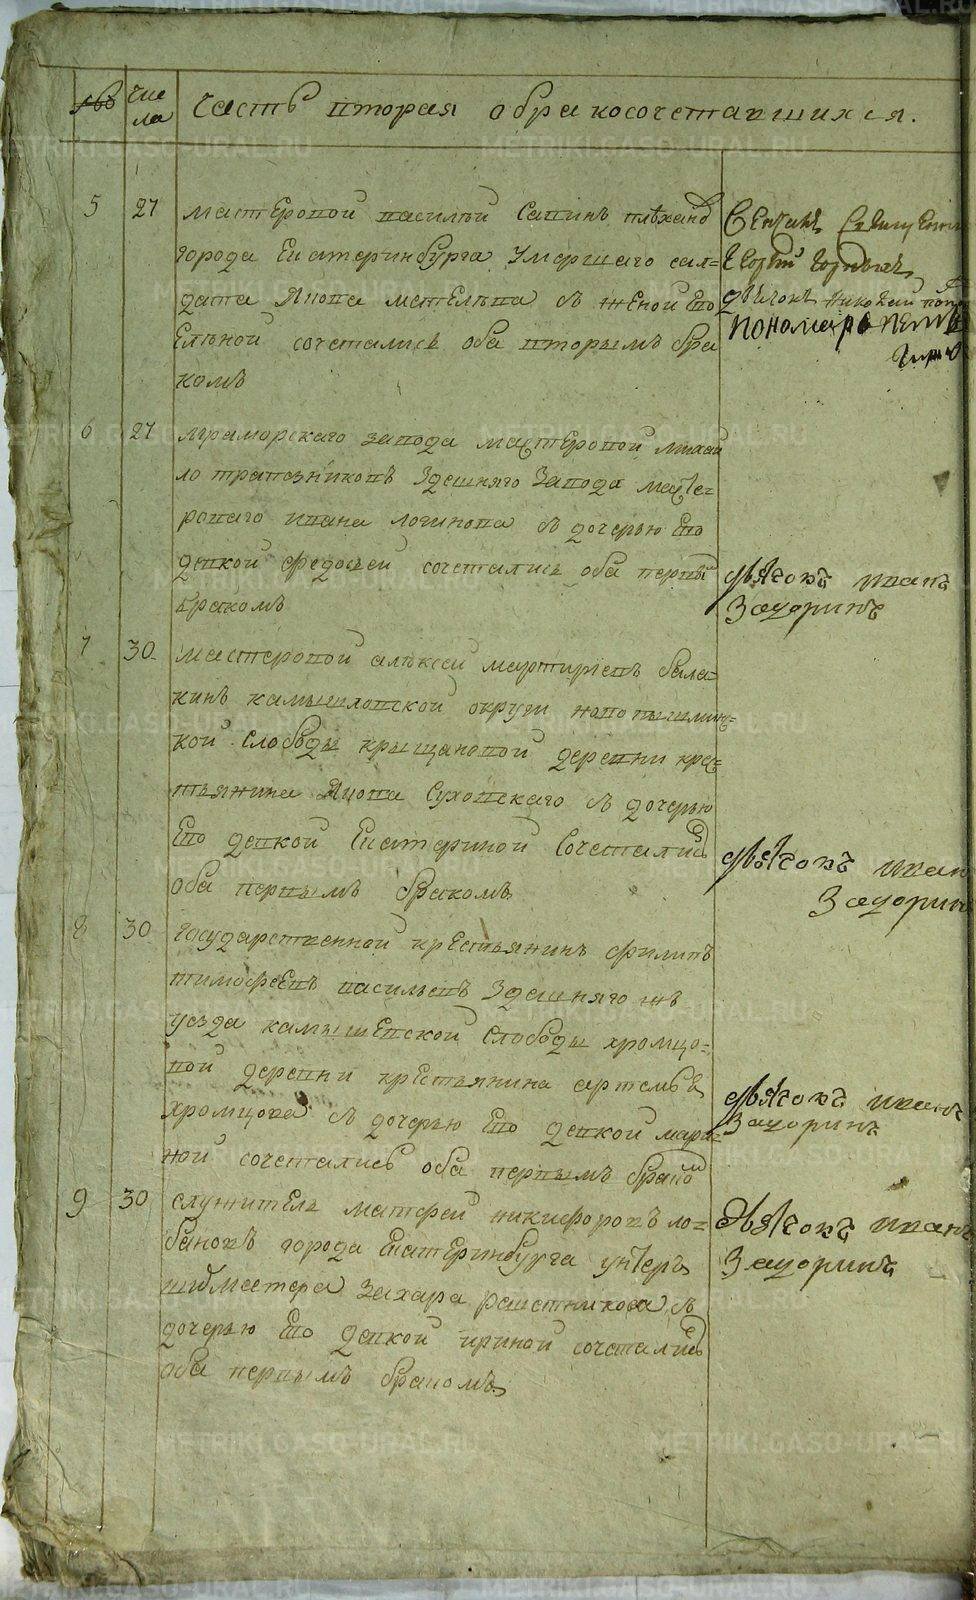 чис
ла
Часть вторая о бракосочетавшихся.
5 27 мастеровой василей Сапинъ плѣханв
города Екатеринбурга Умершаго сал-
дата Якова метелева съ женой Ево
Еленой сочетались оба вторымъ бра
комъ
Священникъ
дьячокъ николай попо
Пономарь
6 27 мраморскаго завода мастеровой михаи
ло трапезниковъ Здешняго Завода мастe-
роваго ивана логинова съ дочерью Ево
девкой федосьей сочетались оба первы
бракомъ
дьячокъ иванъ
Защоринъ
7 30 мастеровой алексей мартириевъ бала-
кинъ камышловской округи новопышмин-
кой слободы крыщановой деревни крес-
тьянина Якова Суховскаго съ дочерью
Ево девкой Екатериной Сочетались
оба первымъ бракомъ
дьячокъ иван
Защорин
8 30 государственной крестьянинъ филипъ
тимофеевъ васильевъ Здешняго же
уезда камышевской слободы хромцо-
вой деревни крестьянина артемье
хромцова съ дочерью Ево девкой мари-
ной сочетались оба первымъ бракомъ
дьячокъ иванъ
Защоринъ
9 30 служитель матфей никифоровъ ло-
бановъ города Екатеринбурга унтеръ
шихтмейстера Захара решетникова съ
дочерью Ево девкой ириной сочетались
оба первымъ бракомъ
дьячокъ иванъ
Защоринъ
METRIKI.GASO-URAL.RU